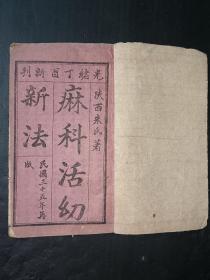 光緒丁酉新刊
陝西朱氏著
麻科活幼
新法
民國三十五年再
版